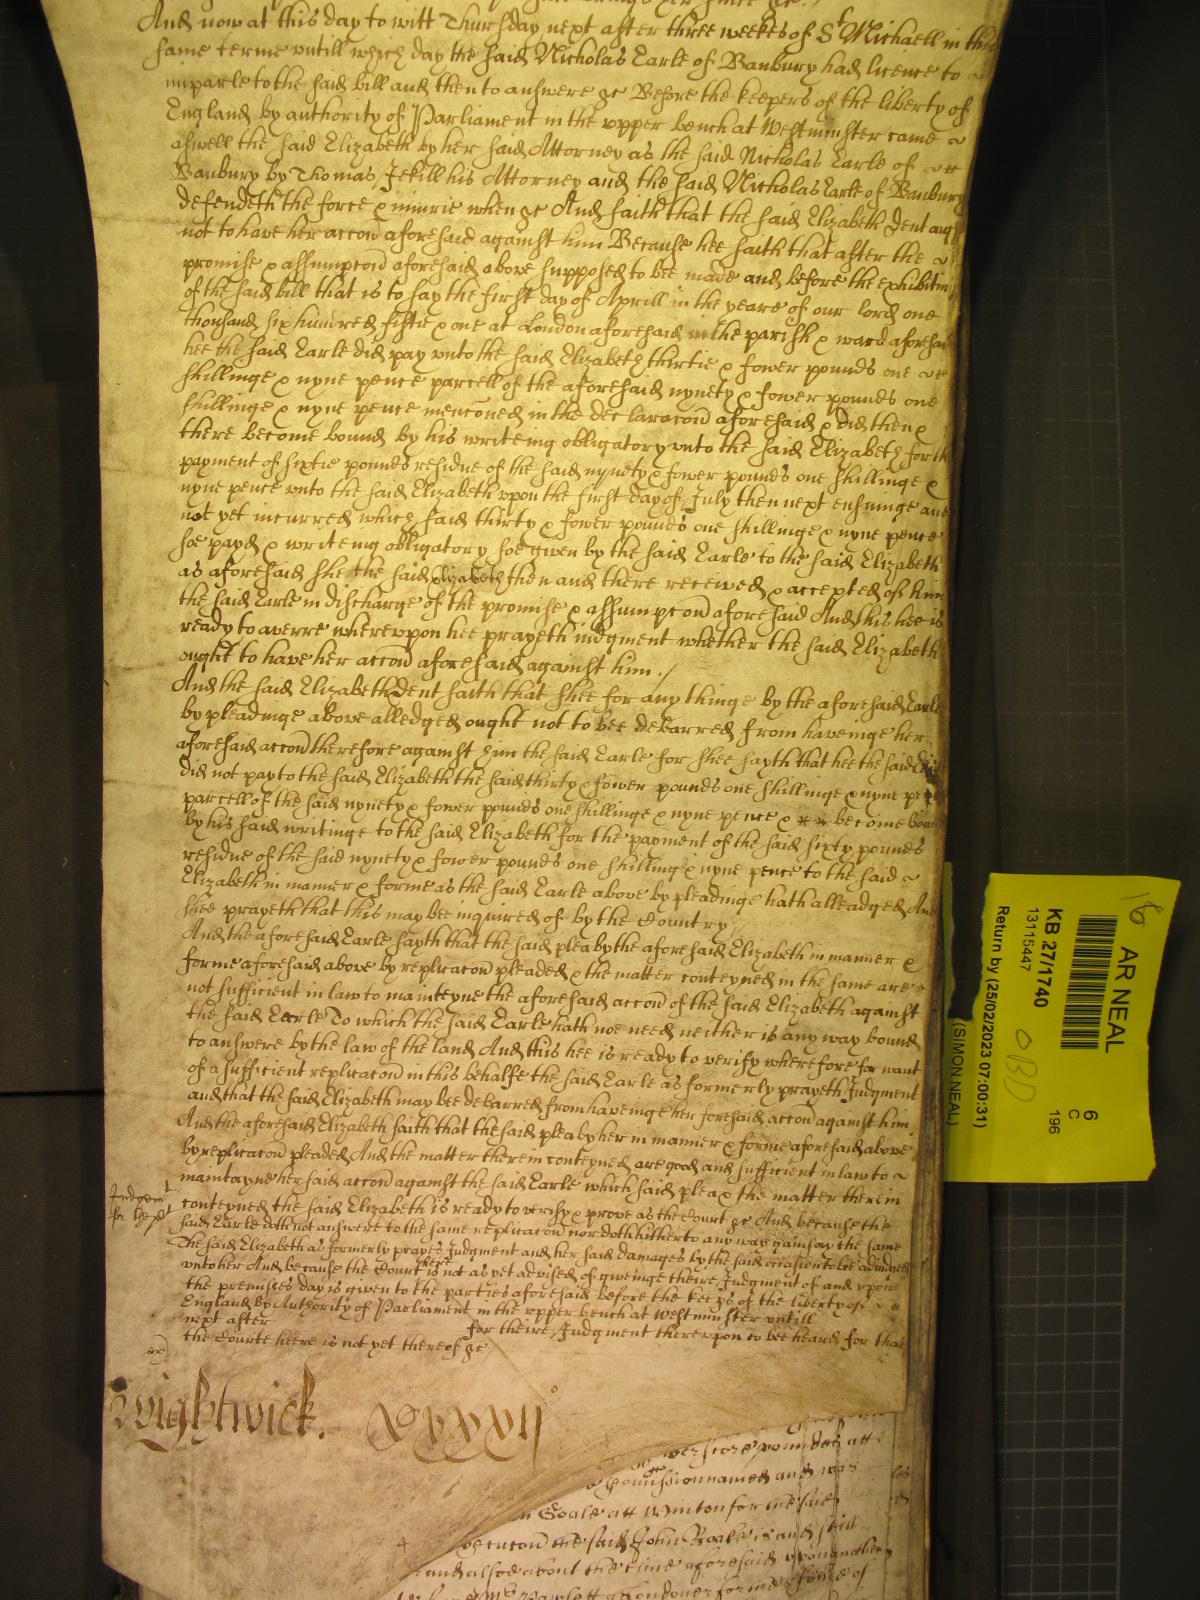 And now at this day to witt Thursday next after three weekes of St Michaell in this
same terme untill which day the said Nicholas Earle of Banbury had licence to
imparle to the said bill and then to answere &c Before the keepers of the liberty of
England by authority of Parliament in the upper bench at Westminster came
aswell the said Elizabeth by her said Attorney as the said Nicholas Earle of
Banbury by Thomas Jekill his Attorney and the said Nicholas Earle of Banbury
defendeth the force & iniurie when &c And saith that the said Elizabeth Dent ought
not to have her accon aforesaid against him Because hee saith that after the
promise & assumpcon aforesaid above supposed to bee made and before the exhibiting
of the said bill that is to say the first day of Aprill in the yeare of our lord one
thousand six hundred fiftie & one at London aforesaid in the parish & ward aforesaid
hee the said Earle did pay unto the said Elizabeth thirtie & fower pounds one
shillinge & nyne pence parcell of the aforesaid nynety & fower pounds one
shillinge & nyne pence menconed in the declaracon aforesaid & did then &
there become bound by his writeing obligatory unto the said Elizabeth for the
payment of sixtie pounds residue of the said nynety & fower pounds one shillinge &
nyne pence unto the said Elizabeth upon the first day of July then next ensuinge and
not yet incurred which said thirty & fower pounds one shillinge & nyne pence
soe payd & writeing obligatory soe given by the said Earle to the said Elizabeth
as aforesaid she the said Elizabeth then and there received & accepted of him
the said Earle in discharge of the promise & assumpcon aforesaid And this hee is
ready to averre whereupon hee prayeth iudgment whether the said Elizabeth
ought to have her accon aforesaid against him ./
And the said Elizabeth Dent saith that shee for any thinge by the aforesaid Earle
by pleadinge above alledged ought not to bee debarred from haveinge her
aforesaid accon therefore against him the said Earle for shee sayth that hee the said Earle
did not pay to the said Elizabeth the said thirty & fower pounds one shillinge & nyne pence
parcell of the said nynety & fower pounds one shillinge & nyne pence & become bound
by his said writinge to the said Elizabeth for the payment of the said sixty pounds
residue of the said nynety & fower pounds one shilling & nyne pence to the said
Elizabeth in manner & forme as the said Earle above by pleadinge hath alleadged And
shee prayeth that this may bee inquired of by the Country
And the aforesaid Earle sayth that the said plea by the aforesaid Elizabeth in manner &
forme aforesaid above by replicacon pleaded & the matter conteyned in the same are
not sufficient in law to mainteyne the aforesaid accon of the said Elizabeth against
the said Earle To which the said Earle hath noe need neither is any way bound
to answere by the law of the land And this hee is ready to verify wherefore for want
of a sufficient replicacon in this behalfe the said Earle as formerly prayeth Judgment
and that the said Elizabeth may bee debarred from haveinge her foresaid accon against him
And the aforesaid Elizabeth saith that the said plea by her in manner & forme aforesaid above
by replicacon pleaded And the matter therein conteyned are good and sufficient in law to
maintayne her said accon against the said Earle which said plea & the matter therein
conteyned the said Elizabeth is ready to verify & prove as the Court &c And because the
said Earle doth not answere to the same replicacon nor doth hitherto any way gainsay the same
The said Elizabeth as formerly prayes Judgment and her said damages by the said occasion to be adiudged
unto her And because the Court here is not as yet advised of giveinge theire Judgment of and upon
the premisses day is given to the parties aforesaid before the keeps of the liberty of
England by Authority of Parliament in the upper bench at Westminster untill
next after for theire Judgment thereupon to bee heard for that
the Courte heere is not yet thereof &c
Judgemt
Wightwick. xxxxii
pounds att
Comission named and was
Goale att Winton for the said
the said John is and still
and alsoe about the time aforesaid upon another
of
18
AR NEAL
KB 27/1740
13115447
Return by (25/02/2023 07:00:31)
(SIMON NEAL)
6
C
196